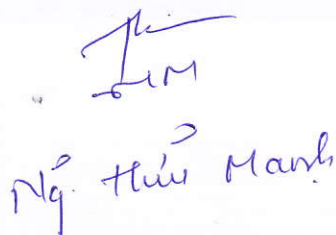 Ng. Hữu Mạnh